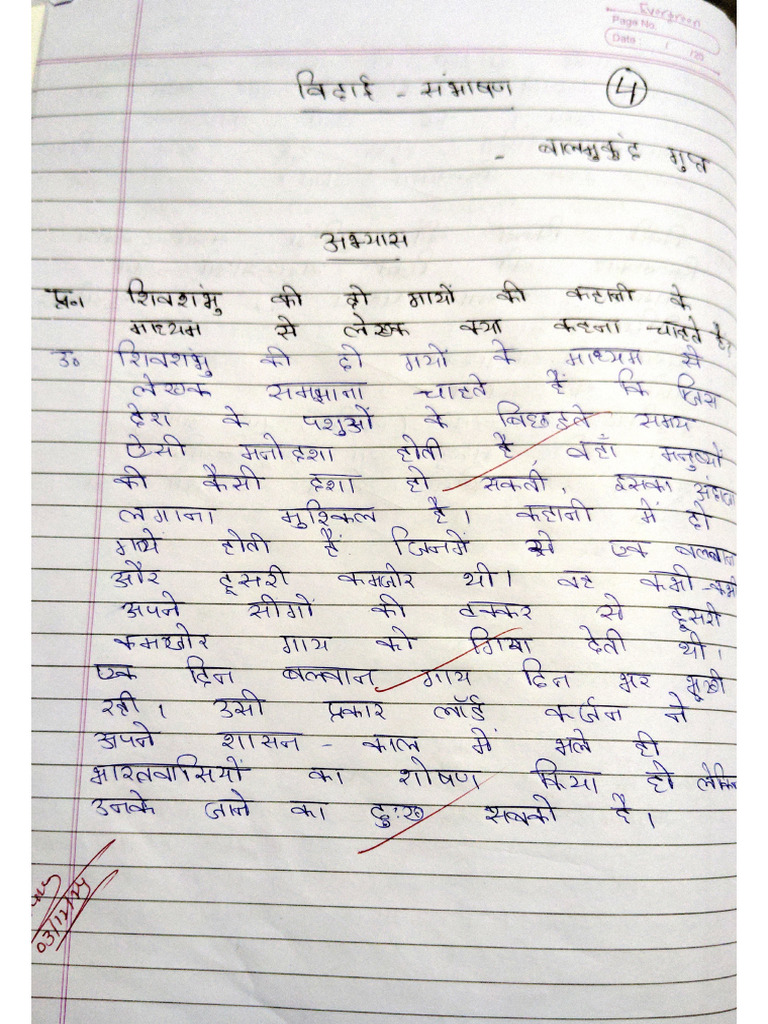 Evergreen
Page No.
Date : / /20
विदाई - संभाषण ④
- बालमुकुंद गुप्त
अभ्यास
प्रन1 शिवशंभु की दो गायों की कहानी के
माध्यम से लेखक क्या कहना चाहते है?
उ० शिवशंभु की दो गयों के माध्यम से
लेखक समझाना चाहते हैं कि जिस
देश के पशुओं के बिछड़ते समय
ऐसी मनोदशा होती है, वहाँ मनुष्यों
की कैसी दशा हो सकती, इसका अंदाजा
लगाना मुश्किल है। कहानी में दो
गायें होती हैं जिनमें से एक बलवान
और दूसरी कमजोर थी। वह कभी-कभी
अपने सींगों की टक्कर से दूसरी
कमजोर गाय को गिरा देती थी।
एक दिन बलवान गाय दिन भर भूखी
रही। उसी प्रकार लॉर्ड कर्जन ने
अपने शासन-काल में भले ही
भारतवासियों का शोषण किया हो लेकिन
उनके जाने का दुःख सबको है।
03/12/24